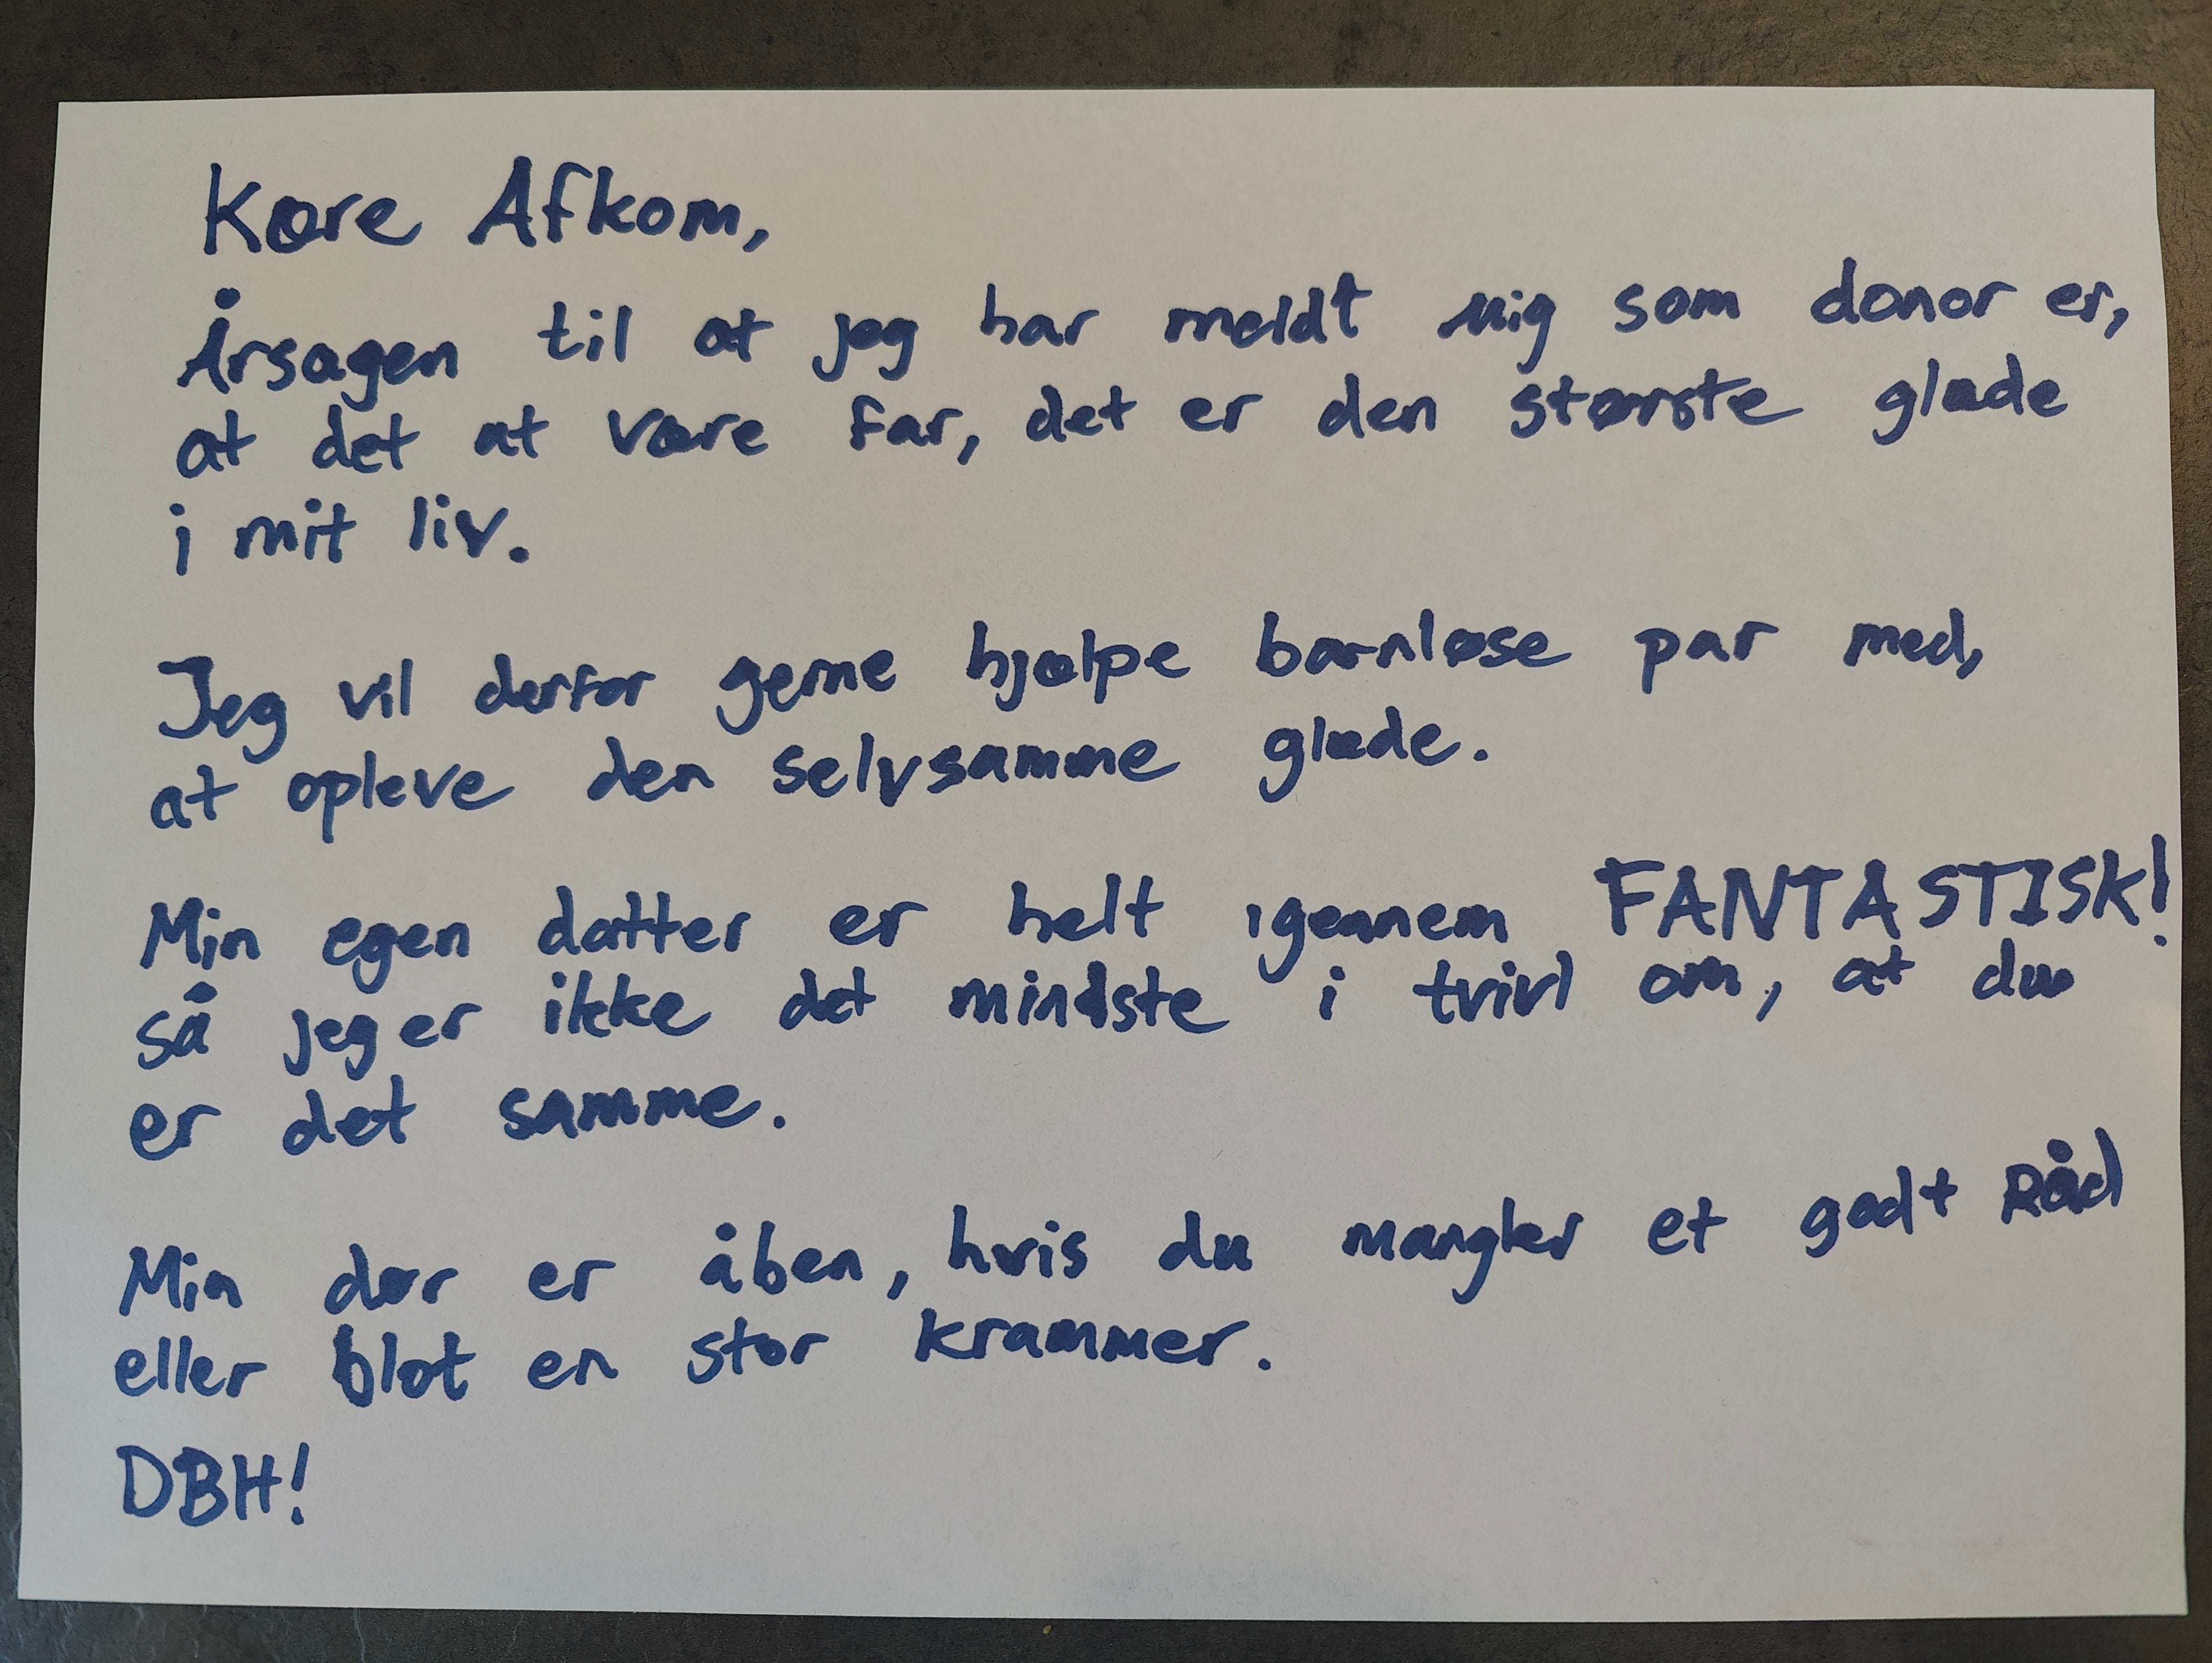 Kære Afkom,
Årsagen til at jeg har meldt mig som donor er,
at det at være far, det er den største glæde
i mit liv.
Jeg vil derfor gerne hjælpe barnløse par med,
at opleve den selvsamme glæde.
Min egen datter er helt igennem FANTASTISK!
så jeg er ikke det mindste i tvivl om, at du
er det samme.
Min dør er åben, hvis du mangler et godt Råd
eller blot en stor krammer.
DBH!